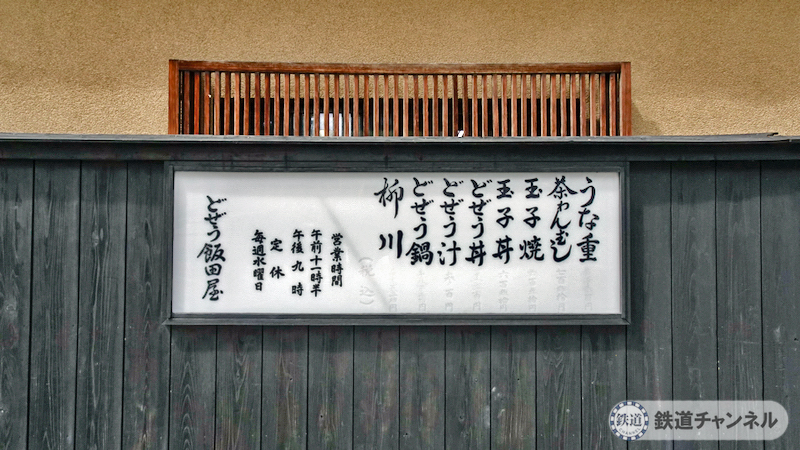 うな重
茶わんむし
玉子焼
玉子丼
どぜう丼
どぜう汁
どぜう鍋
柳川
(税込)
営業時間
午前十一時半
午後九時
定休
毎週水曜日
どぜう飯田屋
鉄道
鉄道チャンネル